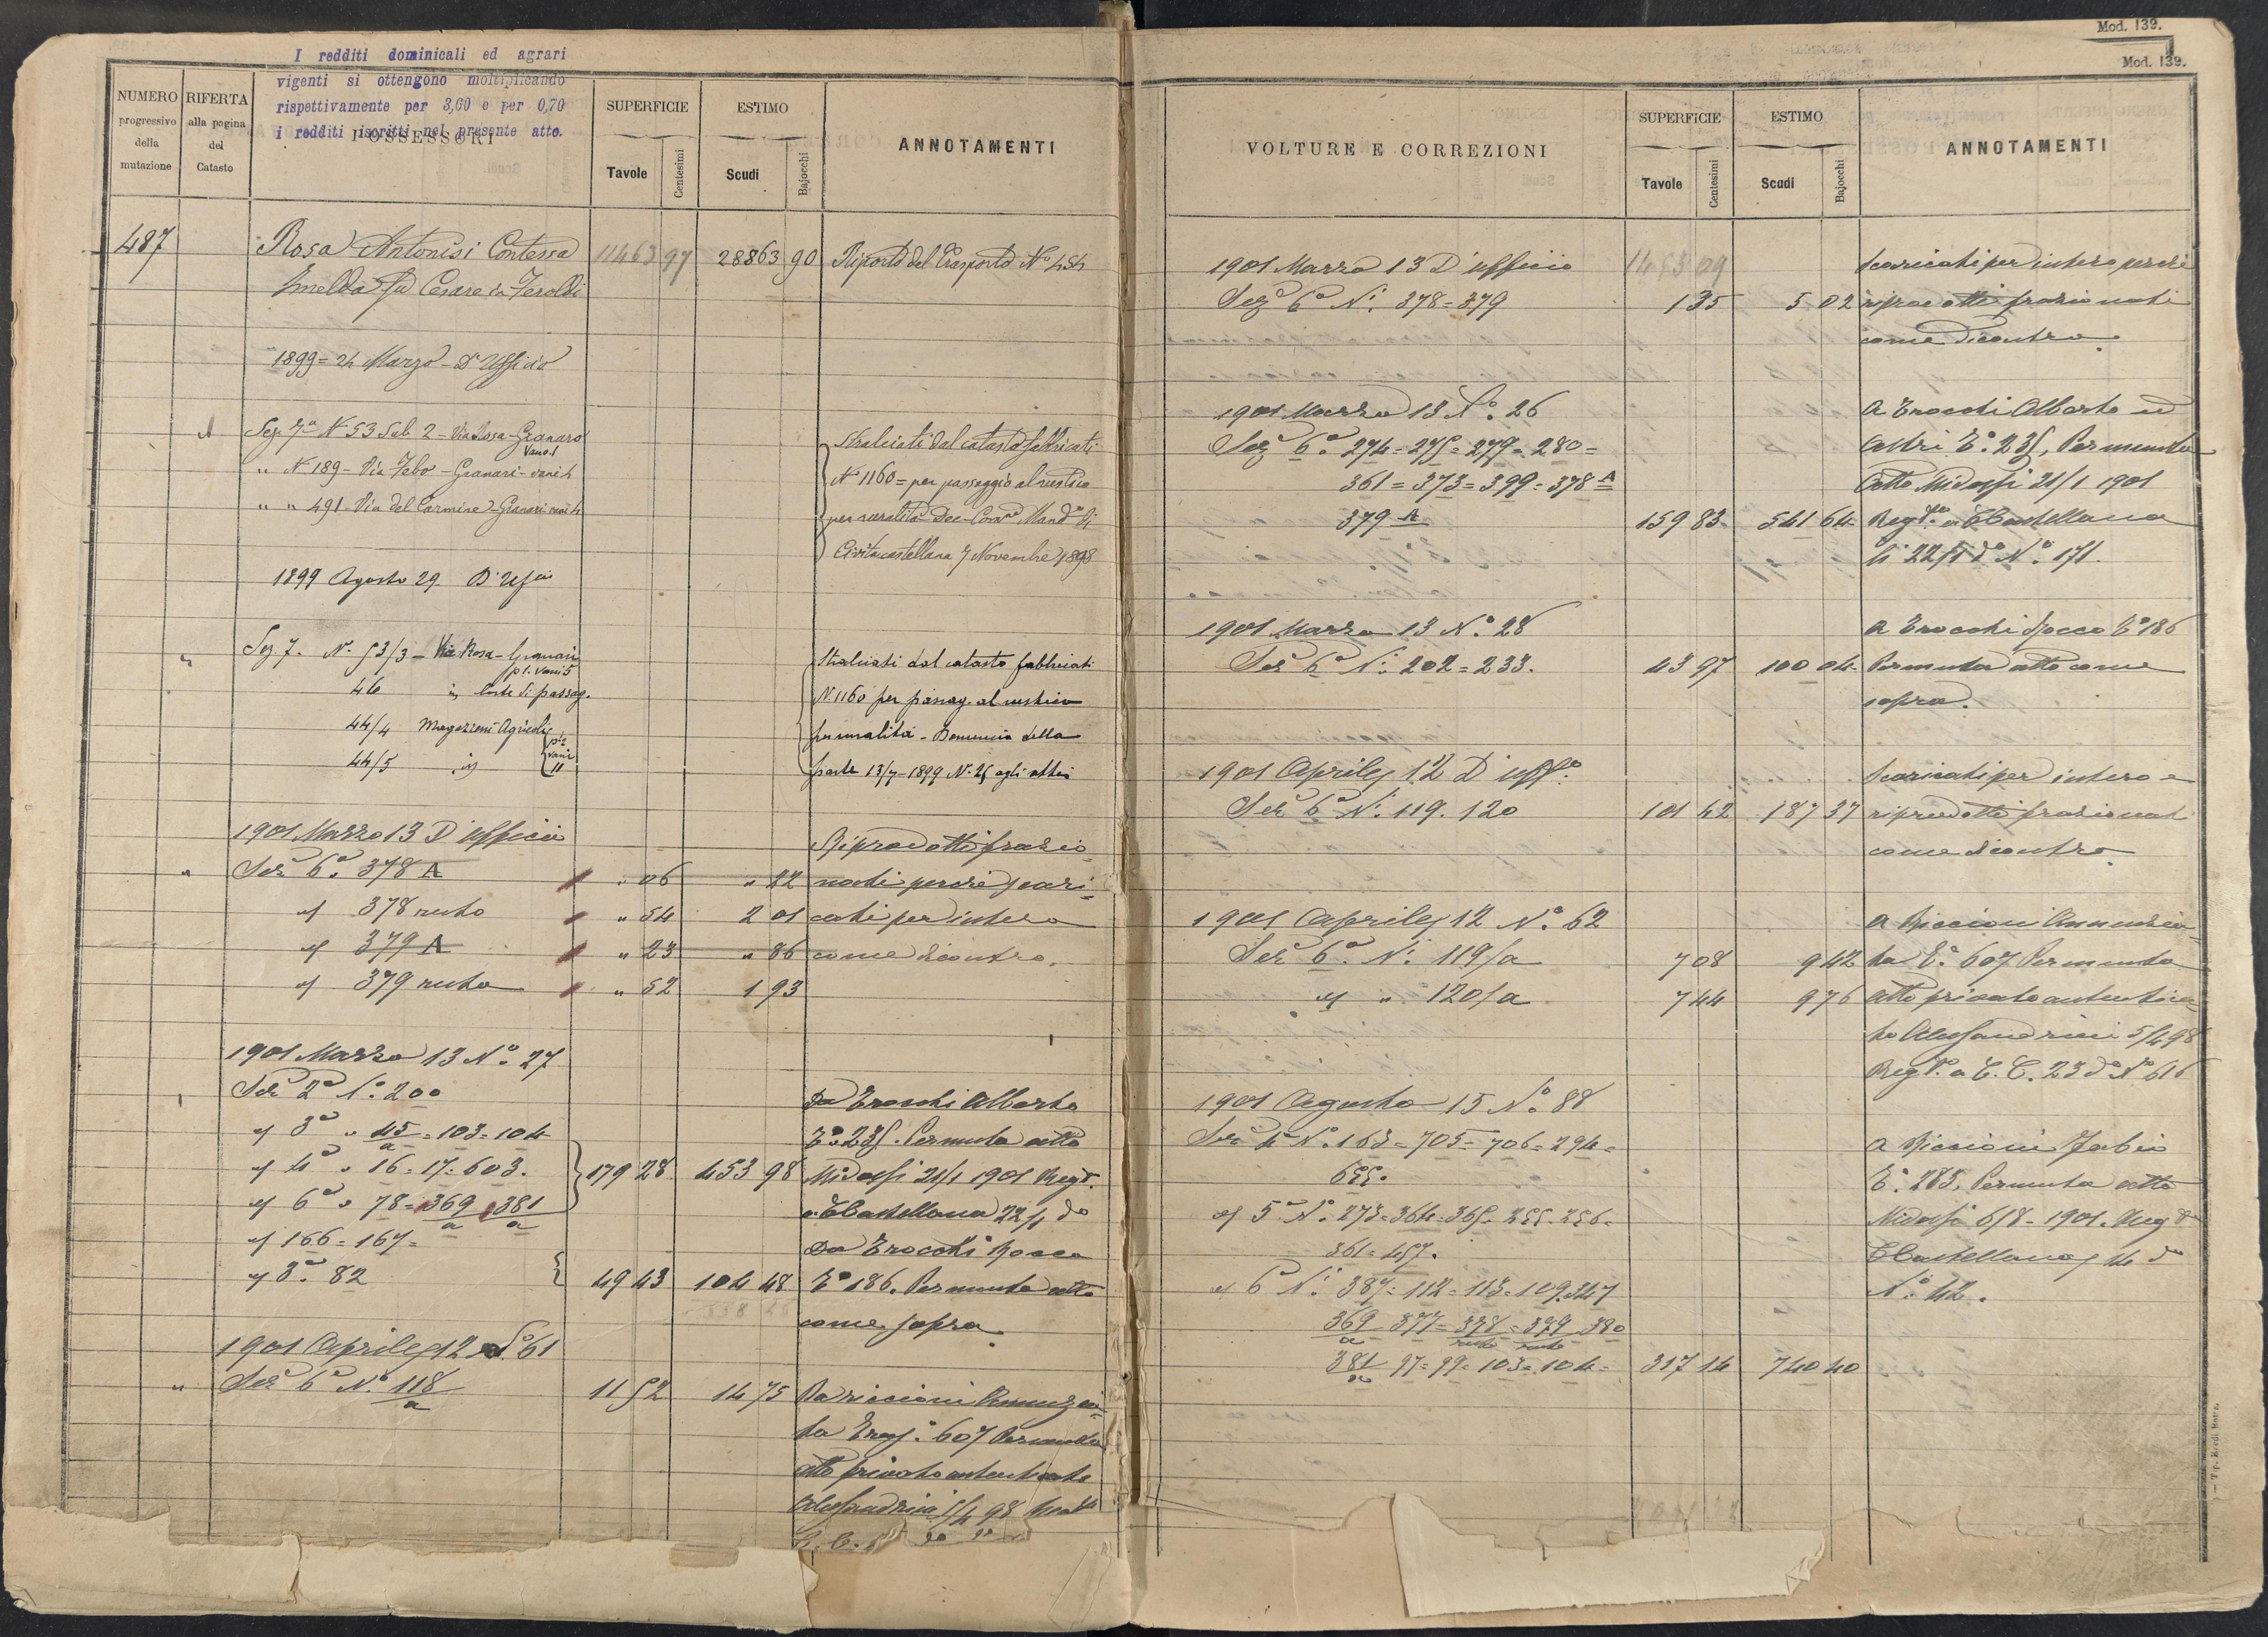 I redditi dominicali ed agrari
vigenti si ottengono moltiplicando
rispettivamente per 3,60 e per 0,70
i redditi iscritti nel presente atto.
NUMERO progressivo della mutazione
RIFERTA alla pagina del Catasto
POSSESSORI
SUPERFICIE
Tavole Centesimi
ESTIMO
Scudi Bajocchi
ANNOTAMENTI
487 Rosa Antonisi Contessa 11463 97 28863 90 Riporto del Trasporto N° 454
Imelda fu Cesare in Feroldi
1899 = 24 Marzo - D'Ufficio
Sez. 7a N 53 Sub 2 - Via Rosa - Granaro Stralciati dal catasto fabbricati
vano 1
" N 189 - Via Febo - Granari - vani 4 N° 1160 = per passaggio al rustico
" " 491 - Via del Carmine - Granari vani 4 per ruralità Dec. Mand
Civitacastellana 7 Novembre 1898
1899 Agosto 29 D'Ufcio
Sez 7. N. 53/3 - Via Rosa - Granari Stralciati dal catasto fabbricati
p.t. vani 5
46 Corte di passag. N. 1160 per passag. al rustico
44/4 Magazzeni Agricoli per ruralità - Denuncia della
44/5 vani 11 parte 13/7 - 1899 N. 25 agli atti
1901 Marzo 13 D'ufficio Riprodotti frazio=
Sez 6a. 378 A " 06 " 22 nati perchè scari=
" 378 resto " 54 2 01 cati per intero
" 379 A " 23 " 86 come dicontro.
" 379 resto " 52 1 93
1901 Marzo 13 N° 27
Sez 2a N° 200 Da Erocchi Alberto
" 3a " 45/a = 103 = 104 E° 235. Permuta atto
" 4a " 16 = 17 = 603. 179 28 453 98 Midossi 21/1 1901 Regt.
" 6a " 78 = 369/a 381/a a CCastellana 22/1 do
" 166 = 167 = Da Erocchi Rocco
" 3a. 82 49 43 104 48 E° 186. Permuta atto
come sopra
1901 Aprile 12 N° 61
" Sez 6a N° 118/a 11 52 14 75 Da Riccioni Annunzia=
ta 607 Permuta
atto privato autenticato
Alessandrini 5/4 98
Mod. 139.
Mod. 139.
VOLTURE E CORREZIONI
SUPERFICIE
Tavole Centesimi
ESTIMO
Scudi Bajocchi
ANNOTAMENTI
1901 Marzo 13 D'ufficio Scaricati per intero perchè
Sez 6a N.i 378 = 379 1 35 5 02 riprodotti frazionati
come dicontro.
1901 Marzo 13 N°. 26 A Erocchi Alberto ed
Sez 6a. 274 = 275 = 279 = 280 = altri E°. 235, Permuta
361 = 373 = 399 = 378 A = atto Midossi 21/1 1901
379 A 159 83 541 64 Regto a CCastellana
li 22/1 do N°. 171.
1901 Marzo 13 N°. 28 A Erocchi Rocco E° 186
Sez 6a N.i 202 = 233. 43 97 100 04 Permuta atto come
sopra.
1901 Aprile 12 D'uff°. Scaricati per intero e
Sez 6a N.i 119. 120 101 42 187 37 riprodotti frazionat
come dicontro.
1901 Aprile 12 N°. 62 A Riccioni Annunzia=
Sez 6a. N.i 119/a 7 08 9 42 ta E°. 607 Permuta
" " 120/a 7 44 9 76 atto privato autentica=
to Alessandrini 5/4 98
Regto. a C.C. 23 do N° 616
1901 Agosto 15 N°. 88
Sez 4a N°. 163 = 705 = 706 = 294 = A Riccioni Fabio
655. E°. 283, Permuta atto
" 5a N°. 273 = 364 = 365 = 255 = 256 = Midossi 6/8 - 1901. Regto
361 = 457. CCastellana 14 do
" 6a N.i 387 = 112 = 113 = 109 = 347 N°. 42.
369/a 377 = 378 resto = 379 resto 380
381/a 97 = 99 = 103 = 104 = 317 14 740 40